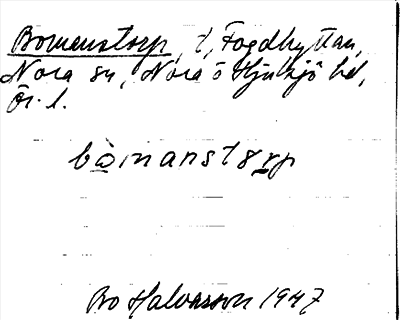 Bomanstorp, t, Fogdhyttan,
Nora sn, Nora o Hjulsjö hd,
Ör. l.
bòmanst8rp
Bo Halvarsson 1947